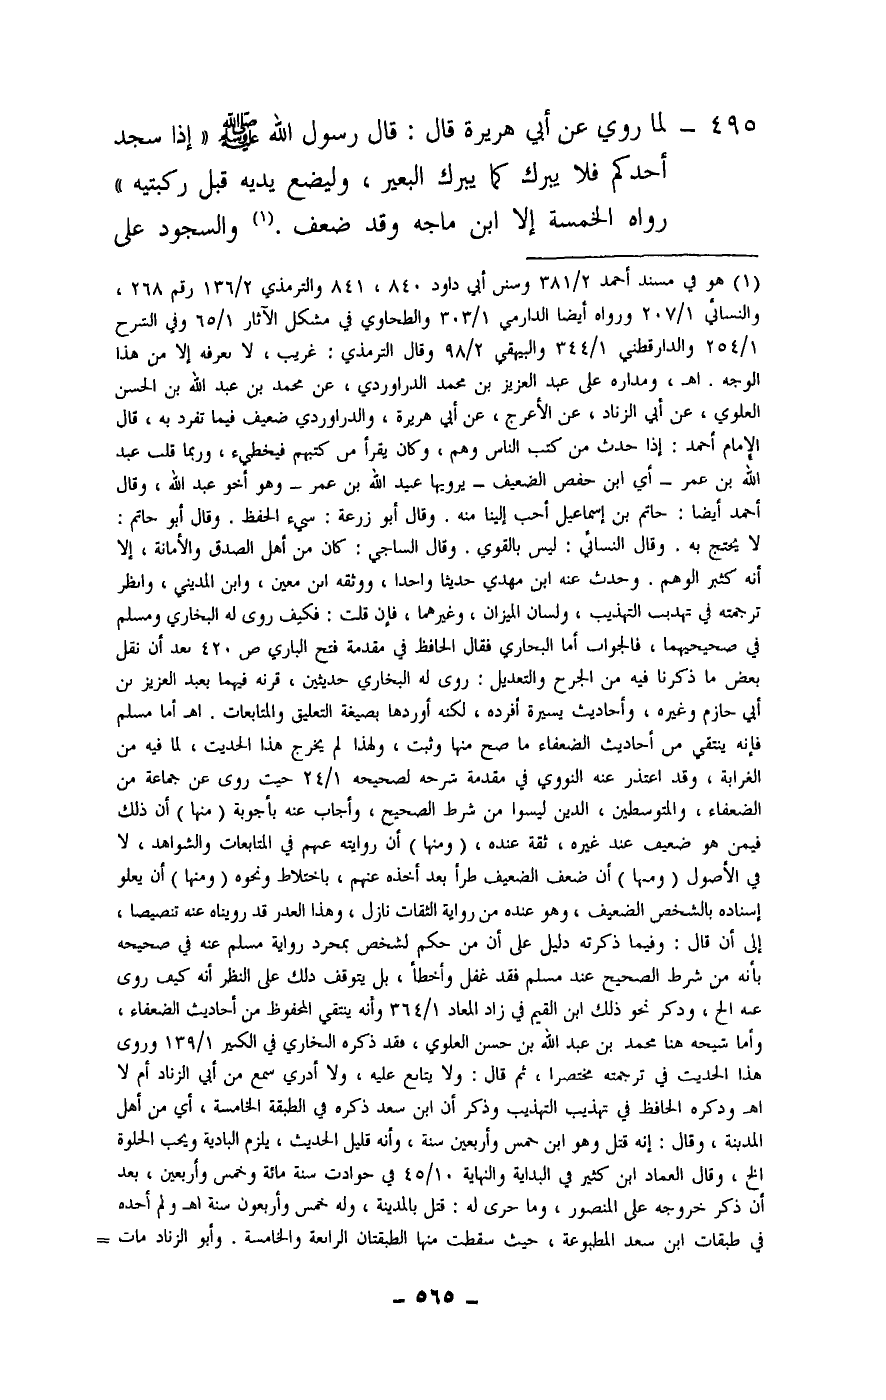 ٤٩٥ – لما روي عن أبي هريرة قال : قال رسول الله ﷺ « إذا سجد
أحدكم فلا يبرك كما يبرك البعير ، وليضع يديه قبل ركبتيه »
رواه الخمسة إلا ابن ماجه وقد ضعف .(١) والسجود على
(١) هو في مسند أحمد ٣٨١/٢ وسنن أبي داود ٨٤٠ ، ٨٤١ والترمذي ١٣٦/٢ رقم ٢٦٨ ،
والنسائي ٢٠٧/١ ورواه أيضا الدارمي ٣٠٣/١ والطحاوي في مشكل الآثار ٦٥/١ وفي الشرح
٢٥٤/١ والدارقطني ٣٤٤/١ والبيهقي ٩٨/٢ وقال الترمذي : غريب ، لا نعرفه إلا من هذا
الوجه . اهـ ، ومداره على عبد العزيز بن محمد الدراوردي ، عن محمد بن عبد الله بن الحسن
العلوي ، عن أبي الزناد ، عن الأعرج ، عن أبي هريرة ، والدراوردي ضعيف فيما تفرد به ، قال
الإمام أحمد : إذا حدث من كتب الناس وهم ، وكان يقرأ من كتبهم فيخطيء ، وربما قلب عبد
الله بن عمر – أي ابن حفص الضعيف – يرويها عبيد الله بن عمر – وهو أخو عبد الله ، وقال
أحمد أيضا : حاتم بن إسماعيل أحب إلينا منه . وقال أبو زرعة : سيء الحفظ . وقال أبو حاتم :
لا يحتج به . وقال النسائي : ليس بالقوي . وقال الساجي : كان من أهل الصدق والأمانة ، إلا
أنه كثير الوهم . وحدث عنه ابن مهدي حديثا واحدا ، ووثقه ابن معين ، وابن المديني ، وانظر
ترجمته في تهذيب التهذيب ، ولسان الميزان ، وغيرهما ، فإن قلت : فكيف روى له البخاري ومسلم
في صحيحيهما ، فالجواب أما البخاري فقال الحافظ في مقدمة فتح الباري ص ٤٢٠ بعد أن نقل
بعض ما ذكرنا فيه من الجرح والتعديل : روى له البخاري حديثين ، قرنه فيهما بعبد العزيز بن
أبي حازم وغيره ، وأحاديث يسيرة أفرده ، لكنه أوردها بصيغة التعليق والمتابعات . اهـ أما مسلم
فإنه ينتقي من أحاديث الضعفاء ما صح منها وثبت ، ولهذا لم يخرج هذا الحديث ، لما فيه من
الغرابة ، وقد اعتذر عنه النووي في مقدمة شرحه لصحيحه ٢٤/١ حيث روى عن جماعة من
الضعفاء ، والمتوسطين ، الذين ليسوا من شرط الصحيح ، وأجاب عنه بأجوبة ( منها ) أن ذلك
فيمن هو ضعيف عند غيره ، ثقة عنده ، ( ومنها ) أن روايته عنهم في المتابعات والشواهد ، لا
في الأصول ( ومنها ) أن ضعف الضعيف طرأ بعد أخذه عنهم ، باختلاط ونحوه ( ومنها ) أن يعلو
إسناده بالشخص الضعيف ، وهو عنده من رواية الثقات نازل ، وهذا العذر قد رويناه عنه تنصيصا ،
إلى أن قال : وفيما ذكرته دليل على أن من حكم لشخص بمجرد رواية مسلم عنه في صحيحه
بأنه من شرط الصحيح عند مسلم فقد غفل وأخطأ ، بل يتوقف ذلك على النظر أنه كيف روى
عنه الخ ، وذكر نحو ذلك ابن القيم في زاد المعاد ٣٦٤/١ وأنه ينتقي المحفوظ من أحاديث الضعفاء ،
وأما شيخه هنا محمد بن عبد الله بن حسن العلوي ، فقد ذكره البخاري في الكبير ١٣٩/١ وروى
هذا الحديث في ترجمته مختصرا ، ثم قال : ولا يتابع عليه ، ولا أدري سمع من أبي الزناد أم لا
اهـ وذكره الحافظ في تهذيب التهذيب وذكر أن ابن سعد ذكره في الطبقة الخامسة ، أي من أهل
المدينة ، وقال : إنه قتل وهو ابن خمس وأربعين سنة ، وأنه قليل الحديث ، يلزم البادية ويحب الخلوة
الخ ، وقال العماد ابن كثير في البداية والنهاية ٤٥/١٠ في حوادث سنة مائة وخمس وأربعين ، بعد
أن ذكر خروجه على المنصور ، وما جرى له : قتل بالمدينة ، وله خمس وأربعون سنة اهـ ولم أجده
في طبقات ابن سعد المطبوعة ، حيث سقطت منها الطبقتان الرابعة والخامسة . وأبو الزناد مات =
– ٥٦٥ –